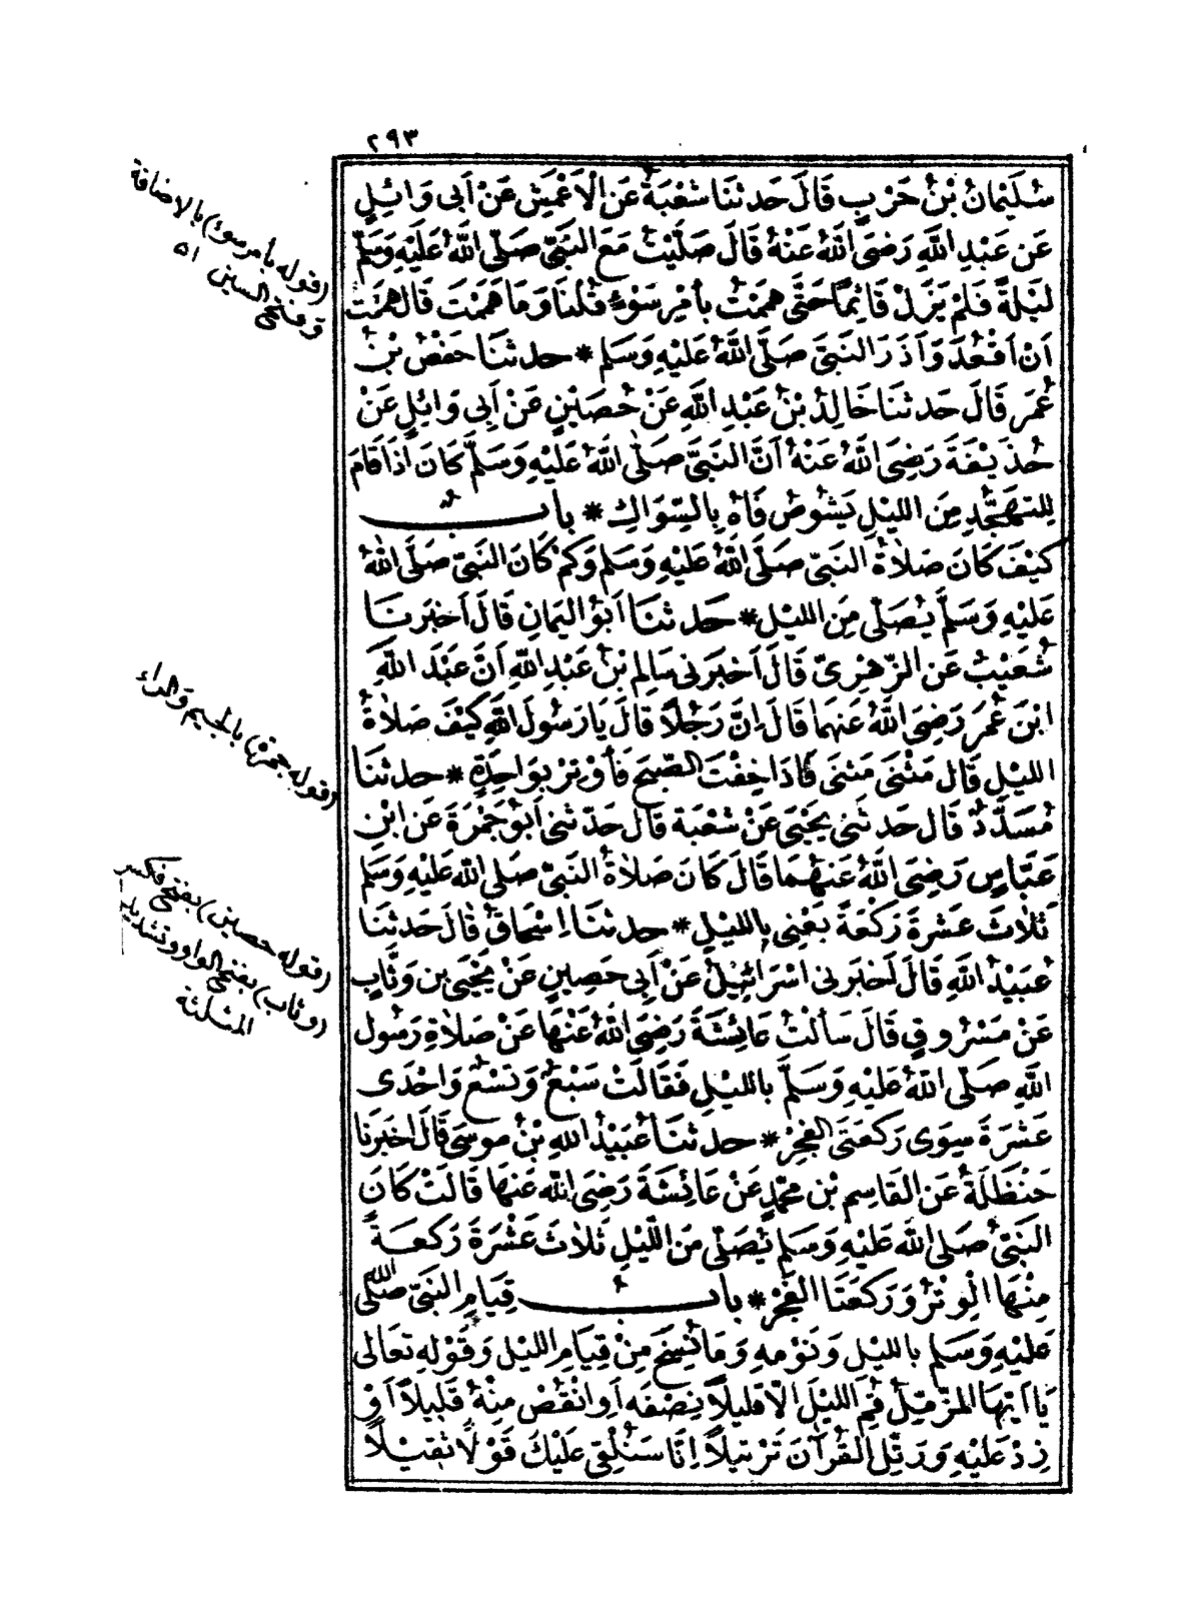 ٢٩٣
سُلَيْمَانُ بْنُ حَرْبٍ قَالَ حَدثنَا شُعْبَةُ عَنِ الْاَعْمَشِ عَنْ اَبى وَائِلٍ
عَن عَبْدِ اللّٰهِ رَضىَ اللّٰهُ عَنْهُ قَالَ صَلَّيْتُ مَعَ النَّبىِّ صَلّى اللّٰهُ عَلَيْهِ وَسَلّم
لَيْلَةً فَلمْ يَزَلْ قَائِماً حَتَّى هَمَمْتُ بِاَمْرِ سَوْءٍ قُلنَا وَمَا هَمَمْتَ قَالَ هَمَمْتُ
اَنْ اَقْعُدَ وَاَذَرَ النَّبىَّ صَلَّى اللّٰهُ عَلَيْهِ وَسَلم * حدثنَا حَفْصُ بْنُ
عُمَرَ قَالَ حَدثنَا خَالِدُ بْنُ عَبْدِ اللّٰهِ عَنْ حُصَيْنٍ عَنْ اَبى وَائِلٍ عَنْ
حُذَيْفَةَ رَضِىَ اللّٰهُ عَنْهُ اَنَّ النَّبىَّ صَلّى اللّٰهُ عَلَيْهِ وَسَلَّم كَانَ اذَا قَامَ
لِلتهَجُّدِ مِنَ الليْلِ يَشُوصُ فَاهُ بِالسِّوَاكِ * بابُ
كَيْفَ كَانَ صَلَاةُ النَّبىّ صَلَّى اللّٰهُ عَلَيْهِ وَسَلم وَكمْ كَانَ النَّبىّ صَلَّى اللّٰهُ
عَلَيْهِ وَسَلَّم يُصَلّى مِنَ الليْلِ * حَدثنَا اَبُو اليَمانِ قَالَ اَخبَرنَا
شُعَيْبُ عَنِ الزّهْرِىّ قَالَ اَخبَرَنى سَالِمُ بْنُ عَبْدِ اللّٰهِ اَنَّ عَبْدَ اللّٰهِ
ابْنَ عُمَرَ رَضِىَ اللّٰهُ عَنهمَا قَالَ اِنَّ رَجُلاً قَالَ يَا رَسُولَ اللّٰهِ كيْفَ صَلَاةُ
الليْلِ قَال مَثْنَى مَثنَى فَاذَا خِفْتَ الصّبحَ فَأوْتِرْ بِوَاحِدَةٍ * حدثنَا
مُسَدَّدٌ قَال حَدثَنى يَحْيَى عَنْ شعْبَة قَال حَدّثنى اَبُو جَمْرَةَ عَنِ ابْنِ
عَبَّاسٍ رَضِىَ اللّٰهُ عَنْهُمَا قَالَ كَانَ صَلَاةُ النَّبىّ صَلى اللّٰه عَلَيْهِ وَسَلم
ثَلاثَ عَشْرَةَ رَكْعَةً يَعْنِى بِالليْلِ * حدثنَا اِسْحَاقُ قَالَ حَدثنَا
عُبَيْدُ اللّٰهِ قَالَ اَخبَرنى اسْرَائِيلُ عَنْ اَبى حَصِينٍ عَنْ يَحْيَى بن وَثَّابٍ
عَنْ مَسْرُوقٍ قَالَ سَألْتُ عَائِشَةَ رَضِىَ اللّٰهُ عَنْهَا عَنْ صَلاةِ رَسُول
اللّٰهِ صَلّى اللّٰهُ عَلَيْهِ وَسَلَّم بالليْلِ فَقَالَتْ سَبْعٌ وَتسْعٌ وَاحْدَى
عَشْرَةَ سِوَى رَكعَتَىِ الفَجرِ * حدثنَا عُبَيْدُ اللّٰهِ بْنُ مُوسَى قَالَ اخبَرنَا
حَنْظَلَةُ عَنِ القَاسِم بْنِ محَمَّدٍ عَنْ عَائِشَةَ رَضِىَ اللّٰه عَنهَا قَالَتْ كَانَ
النَّبىُّ صَلى اللّٰهُ عَلَيْهِ وَسَلم يُصَلّى مِنَ اللّيْلِ ثَلاثَ عَشْرَةَ رَكعَةً
مِنْهَا الْوِتْرُ وَرَكعَتَا الفَجْرِ * بابُ قِيَامِ النَّبىّ صَلّى اللّٰه
عَليْهِ وَسَلم بالليْلِ وَنَوْمِهِ وَمَا نُسِخَ مِنْ قِيَامِ الليْلِ وَقَوْلِهِ تعَالى
يَا اَيّهَا المُزّمّلُ قُمِ اللَّيْلَ الّا قَليلاً نِصْفَه اَوِ انْقُصْ مِنْهُ قَلِيلاً اَوْ
زِدْ عَلَيْهِ وَرَتّلِ القُرآنَ تَرْتيلاً اِنّا سَنُلْقِى عَلَيْكَ قَوْلاً ثَقيْلاً
(قوله بأمر سوء) بالاضافة
وفتح السين ا ه
(قوله جمرة) بالجيم والراء
(قوله حصين) بفتح فكسر
(وثاب) بفتح الواو وتشديد
المثلثة